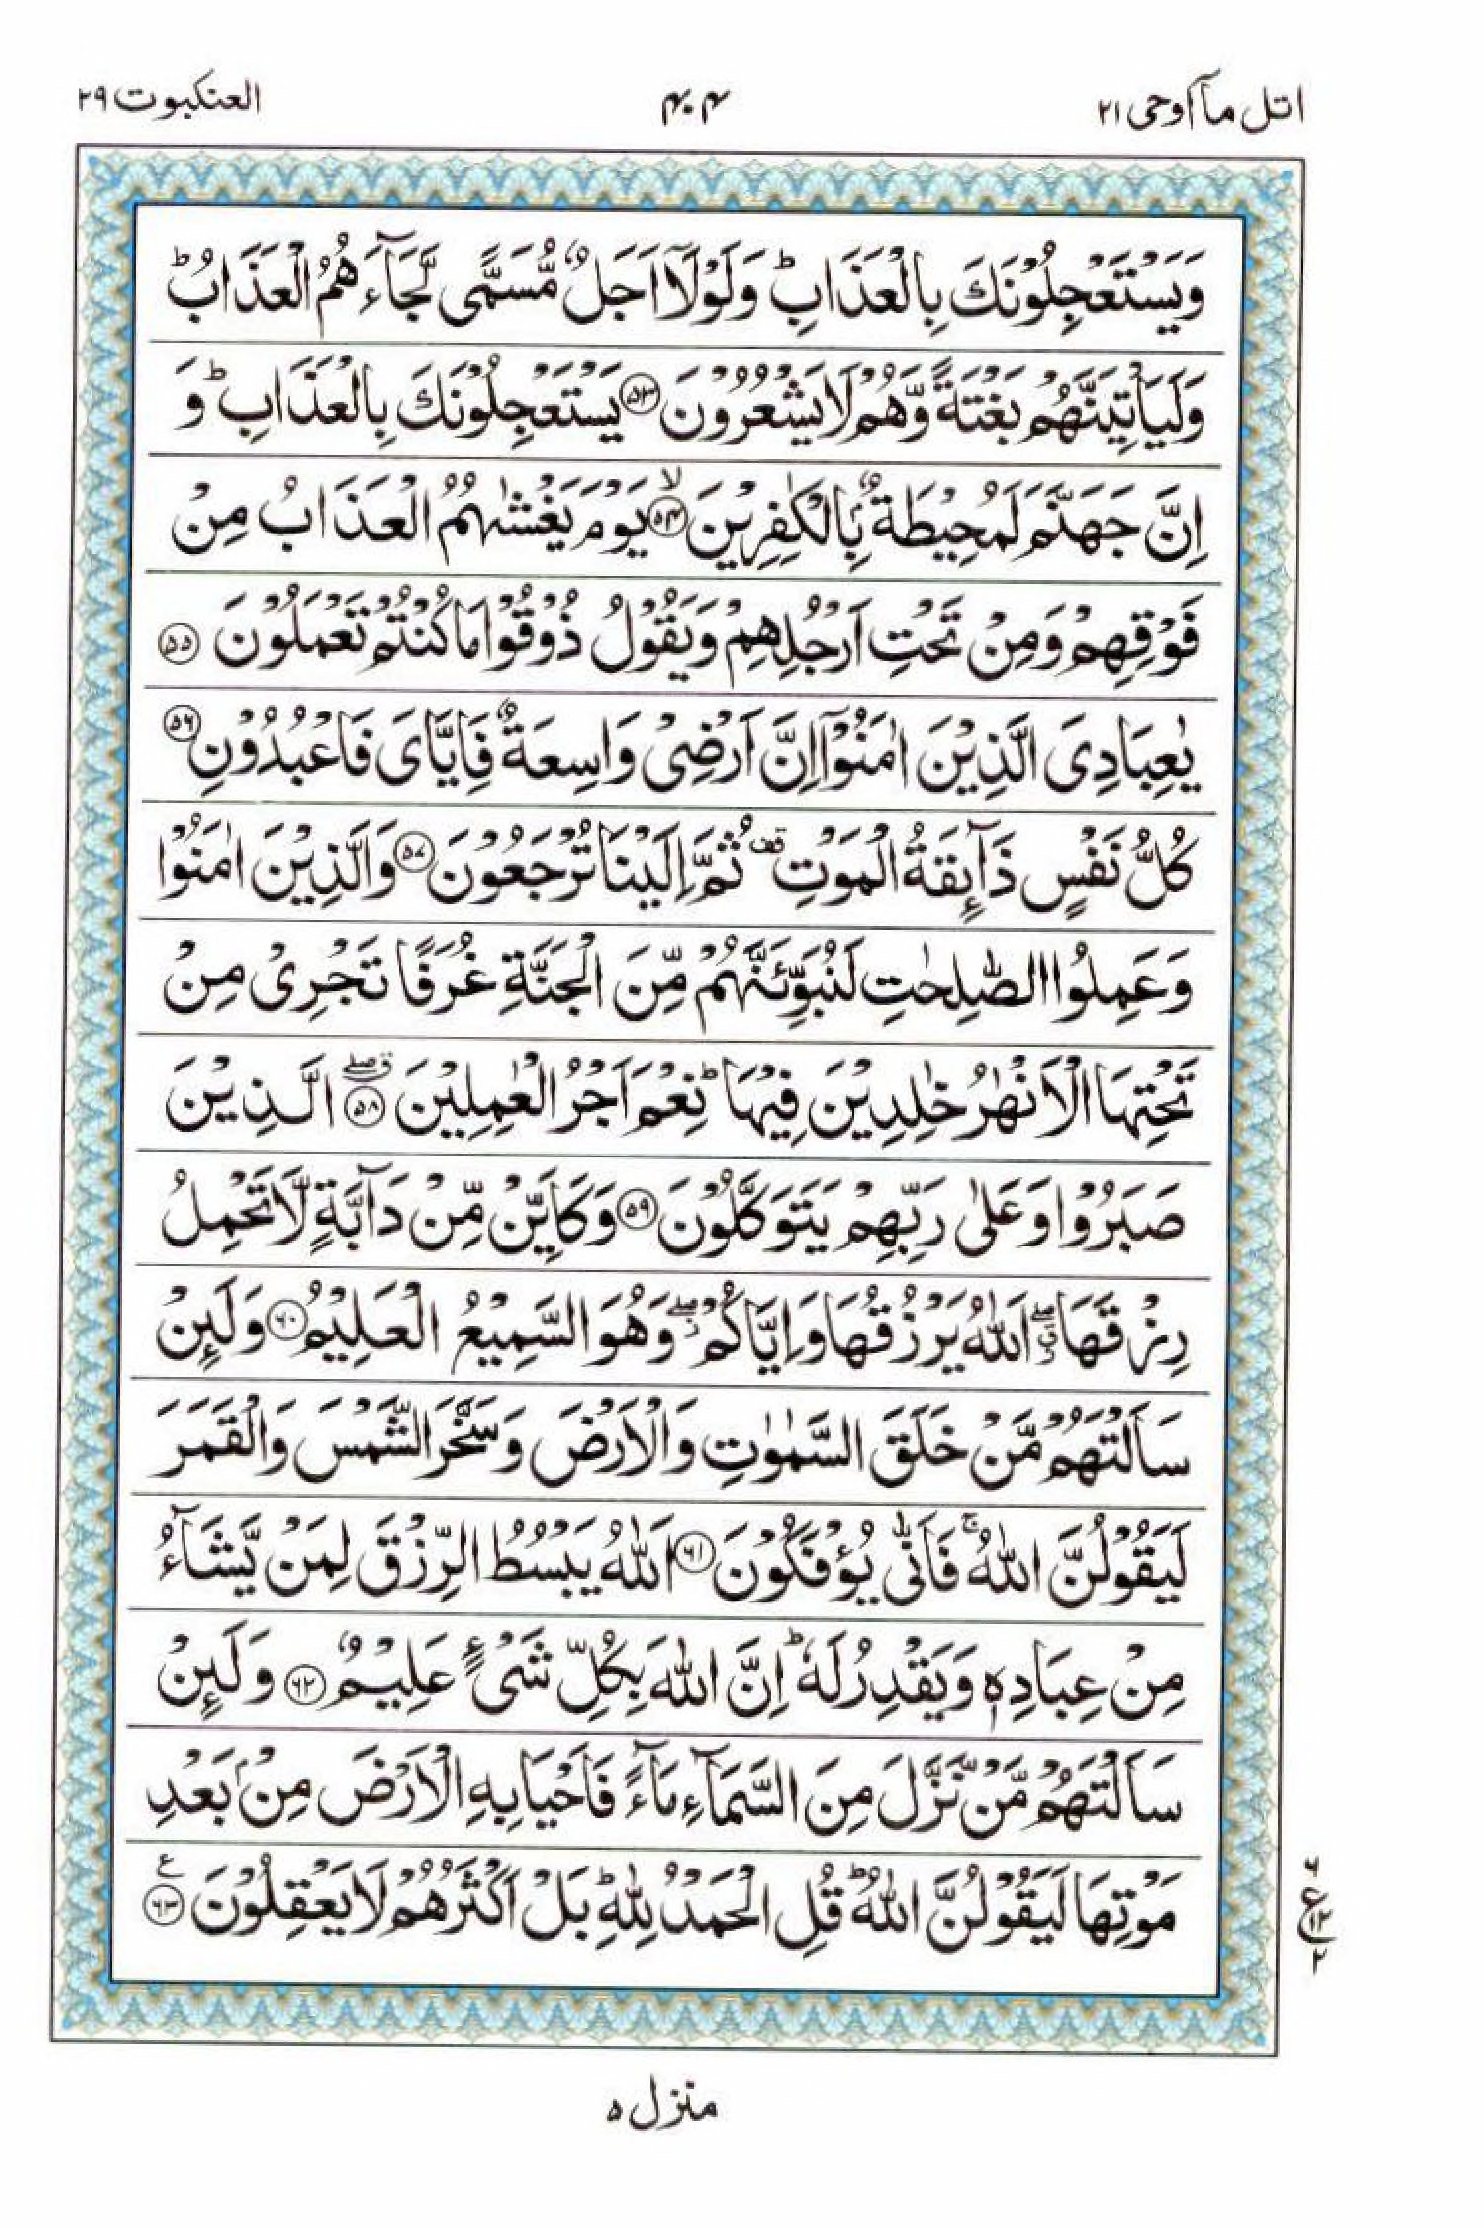 اتل مآ اوحی ۲۱
۴۰۴
العنکبوت ۲۹
وَيَسْتَعْجِلُوْنَكَ بِالْعَذَابِ ؕ وَلَوْلَاۤ اَجَلٌ مُّسَمًّی لَّجَآءَهُمُ الْعَذَابُ ؕ
وَلَيَاْتِيَنَّهُمْ بَغْتَةً وَّهُمْ لَا يَشْعُرُوْنَ ﴿۵۳﴾ يَسْتَعْجِلُوْنَكَ بِالْعَذَابِ ؕ وَ
اِنَّ جَهَنَّمَ لَمُحِيْطَةٌۢ بِالْكٰفِرِيْنَ ۙ﴿۵۴﴾ يَوْمَ يَغْشٰىهُمُ الْعَذَابُ مِنْ
فَوْقِهِمْ وَمِنْ تَحْتِ اَرْجُلِهِمْ وَيَقُوْلُ ذُوْقُوْا مَا كُنْتُمْ تَعْمَلُوْنَ ﴿۵۵﴾
يٰعِبَادِیَ الَّذِيْنَ اٰمَنُوْۤا اِنَّ اَرْضِیْ وَاسِعَةٌ فَاِيَّایَ فَاعْبُدُوْنِ ﴿۵۶﴾
كُلُّ نَفْسٍ ذَآئِقَةُ الْمَوْتِ ۟ ثُمَّ اِلَيْنَا تُرْجَعُوْنَ ﴿۵۷﴾ وَالَّذِيْنَ اٰمَنُوْا
وَعَمِلُوا الصّٰلِحٰتِ لَنُبَوِّئَنَّهُمْ مِّنَ الْجَنَّةِ غُرَفًا تَجْرِیْ مِنْ
تَحْتِهَا الْاَنْهٰرُ خٰلِدِيْنَ فِيْهَا ؕ نِعْمَ اَجْرُ الْعٰمِلِيْنَ ﴿۵۸﴾ۖ الَّذِيْنَ
صَبَرُوْا وَعَلٰی رَبِّهِمْ يَتَوَكَّلُوْنَ ﴿۵۹﴾ وَكَاَيِّنْ مِّنْ دَآبَّةٍ لَّا تَحْمِلُ
رِزْقَهَا ۖ اَللّٰهُ يَرْزُقُهَا وَاِيَّاكُمْ ۖ وَهُوَ السَّمِيْعُ الْعَلِيْمُ ﴿۶۰﴾ وَلَئِنْ
سَاَلْتَهُمْ مَّنْ خَلَقَ السَّمٰوٰتِ وَالْاَرْضَ وَسَخَّرَ الشَّمْسَ وَالْقَمَرَ
لَيَقُوْلُنَّ اللّٰهُ ۚ فَاَنّٰی يُؤْفَكُوْنَ ﴿۶۱﴾ اَللّٰهُ يَبْسُطُ الرِّزْقَ لِمَنْ يَّشَآءُ
مِنْ عِبَادِهٖ وَيَقْدِرُ لَهٗ ؕ اِنَّ اللّٰهَ بِكُلِّ شَیْءٍ عَلِيْمٌ ﴿۶۲﴾ وَلَئِنْ
سَاَلْتَهُمْ مَّنْ نَّزَّلَ مِنَ السَّمَآءِ مَآءً فَاَحْيَا بِهِ الْاَرْضَ مِنْۢ بَعْدِ
مَوْتِهَا لَيَقُوْلُنَّ اللّٰهُ ؕ قُلِ الْحَمْدُ لِلّٰهِ ؕ بَلْ اَكْثَرُهُمْ لَا يَعْقِلُوْنَ ﴿۶۳﴾ع
۶
ع ۱۲
۲
منزل ۵